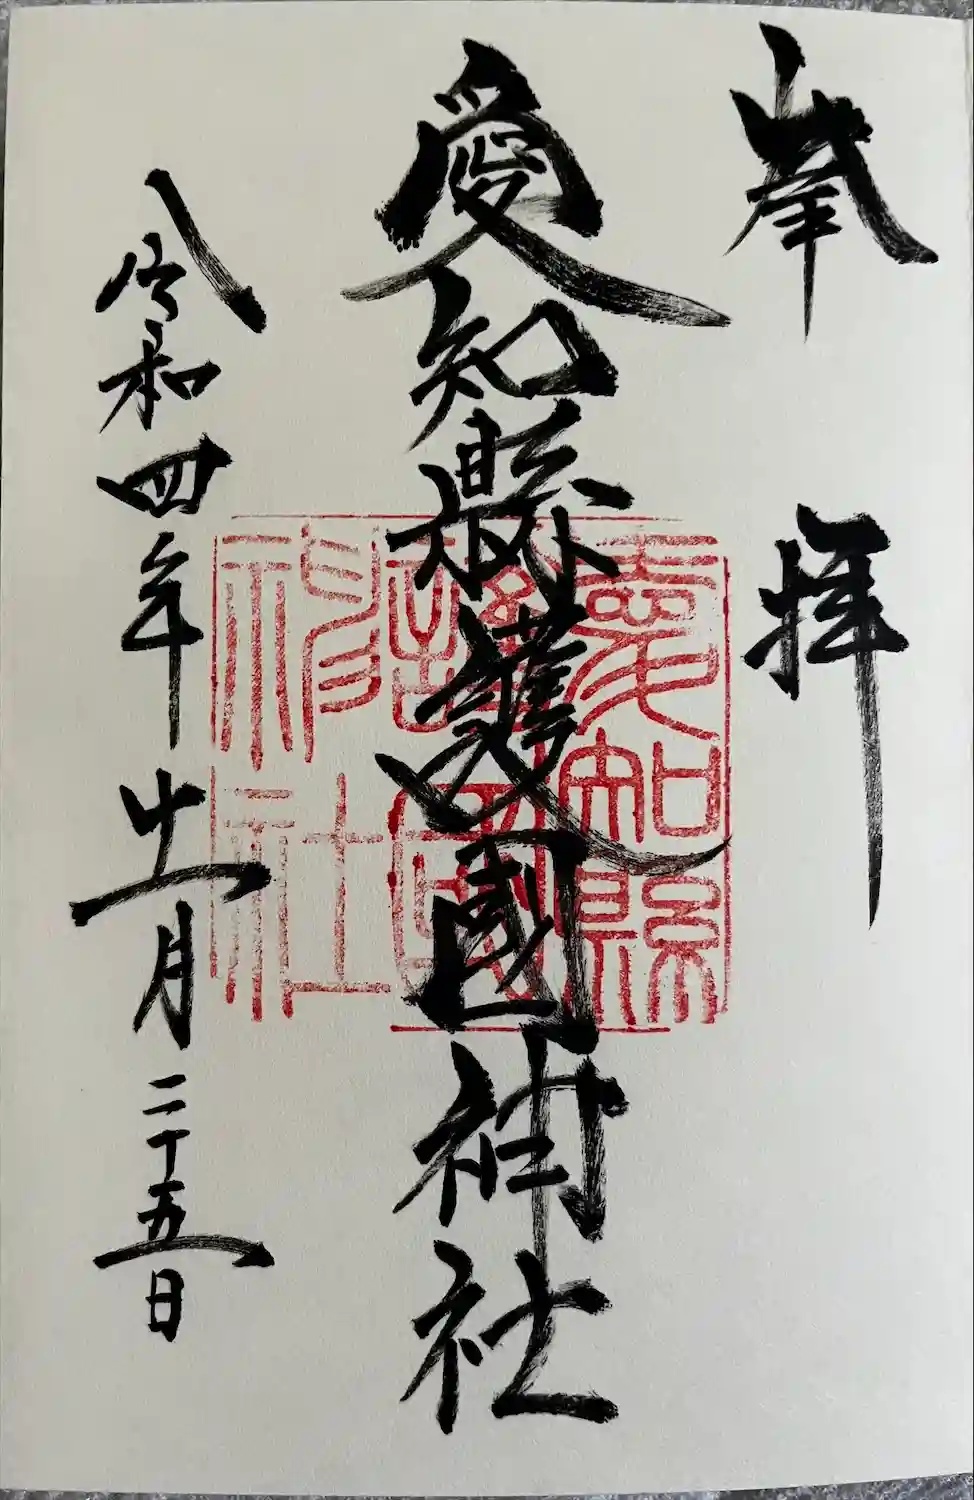 奉拝
愛知縣護國神社
愛知縣
護國
神社
令和四年十一月二十五日